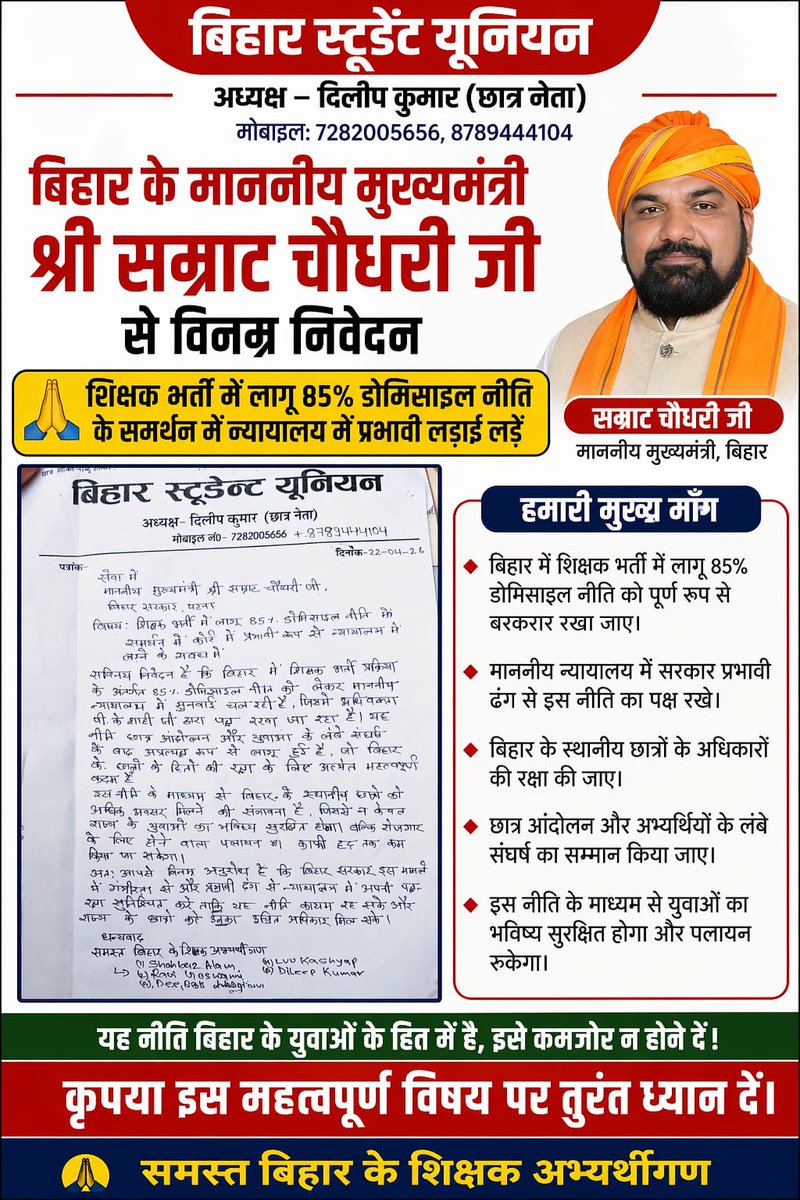 बिहार स्टूडेंट यूनियन
अध्यक्ष – दिलीप कुमार (छात्र नेता)
मोबाइल: 7282005656, 8789444104
बिहार के माननीय मुख्यमंत्री
श्री सम्राट चौधरी जी
से विनम्र निवेदन
शिक्षक भर्ती में लागू 85% डोमिसाइल नीति
के समर्थन में न्यायालय में प्रभावी लड़ाई लड़ें
सम्राट चौधरी जी
माननीय मुख्यमंत्री, बिहार
बिहार स्टूडेन्ट यूनियन
अध्यक्ष- दिलीप कुमार (छात्र नेता)
मोबाईल नं0- 7282005656 + 8789444104
पत्रांक-
दिनांक-22-04-26
सेवा में
माननीय मुख्यमंत्री श्री सम्राट चौधरी जी,
बिहार सरकार, पटना
विषय: शिक्षक भर्ती में लागू 85% डोमिसाइल नीति के
समर्थन में कोर्ट में प्रभावी रूप से न्यायालय में
लड़ने के संबंध में
सविनय निवेदन है कि बिहार में शिक्षक भर्ती प्रक्रिया
के अंतर्गत 85% डोमिसाइल नीति को लेकर माननीय
न्यायालय में सुनवाई चल रही है, जिसमें अधिवक्ता
पी. के शाही जी द्वारा पक्ष रखा जा रहा है। यह
नीति छात्र आंदोलन और युवाओं के लंबे संघर्ष
के बाद रूप से लागू हुई है, जो बिहार
के छात्रों के हितों की रक्षा के लिए अत्यंत महत्वपूर्ण
कदम है
इस नीति के माध्यम से बिहार के स्थानीय छात्रों को
अधिक अवसर मिलने की संभावना है, जिससे न केवल
राज्य के युवाओं का भविष्य सुरक्षित होगा। बल्कि रोजगार
के लिए होने वाला पलायन भी काफी हद तक कम
किया जा सकेगा।
अतः आपसे विनम्र अनुरोध है कि बिहार सरकार इस मामले
में गंभीरता से और प्रभावी ढंग से न्यायालय में अपनी पक्ष-
रखा सुनिश्चित करें ताकि यह नीति कायम रह सके और
राज्य के छात्रों को उनका उचित अधिकार मिल सके।
धन्यवाद
समस्त बिहार के शिक्षक अभ्यर्थीगण
Shahbaz Alam
Luv Kashyap
Ravi Goswami
Dileep Kumar
हमारी मुख्य माँग
बिहार में शिक्षक भर्ती में लागू 85%
डोमिसाइल नीति को पूर्ण रूप से
बरकरार रखा जाए।
माननीय न्यायालय में सरकार प्रभावी
ढंग से इस नीति का पक्ष रखे।
बिहार के स्थानीय छात्रों के अधिकारों
की रक्षा की जाए।
छात्र आंदोलन और अभ्यर्थियों के लंबे
संघर्ष का सम्मान किया जाए।
इस नीति के माध्यम से युवाओं का
भविष्य सुरक्षित होगा और पलायन
रुकेगा।
यह नीति बिहार के युवाओं के हित में है, इसे कमजोर न होने दें!
कृपया इस महत्वपूर्ण विषय पर तुरंत ध्यान दें।
समस्त बिहार के शिक्षक अभ्यर्थीगण